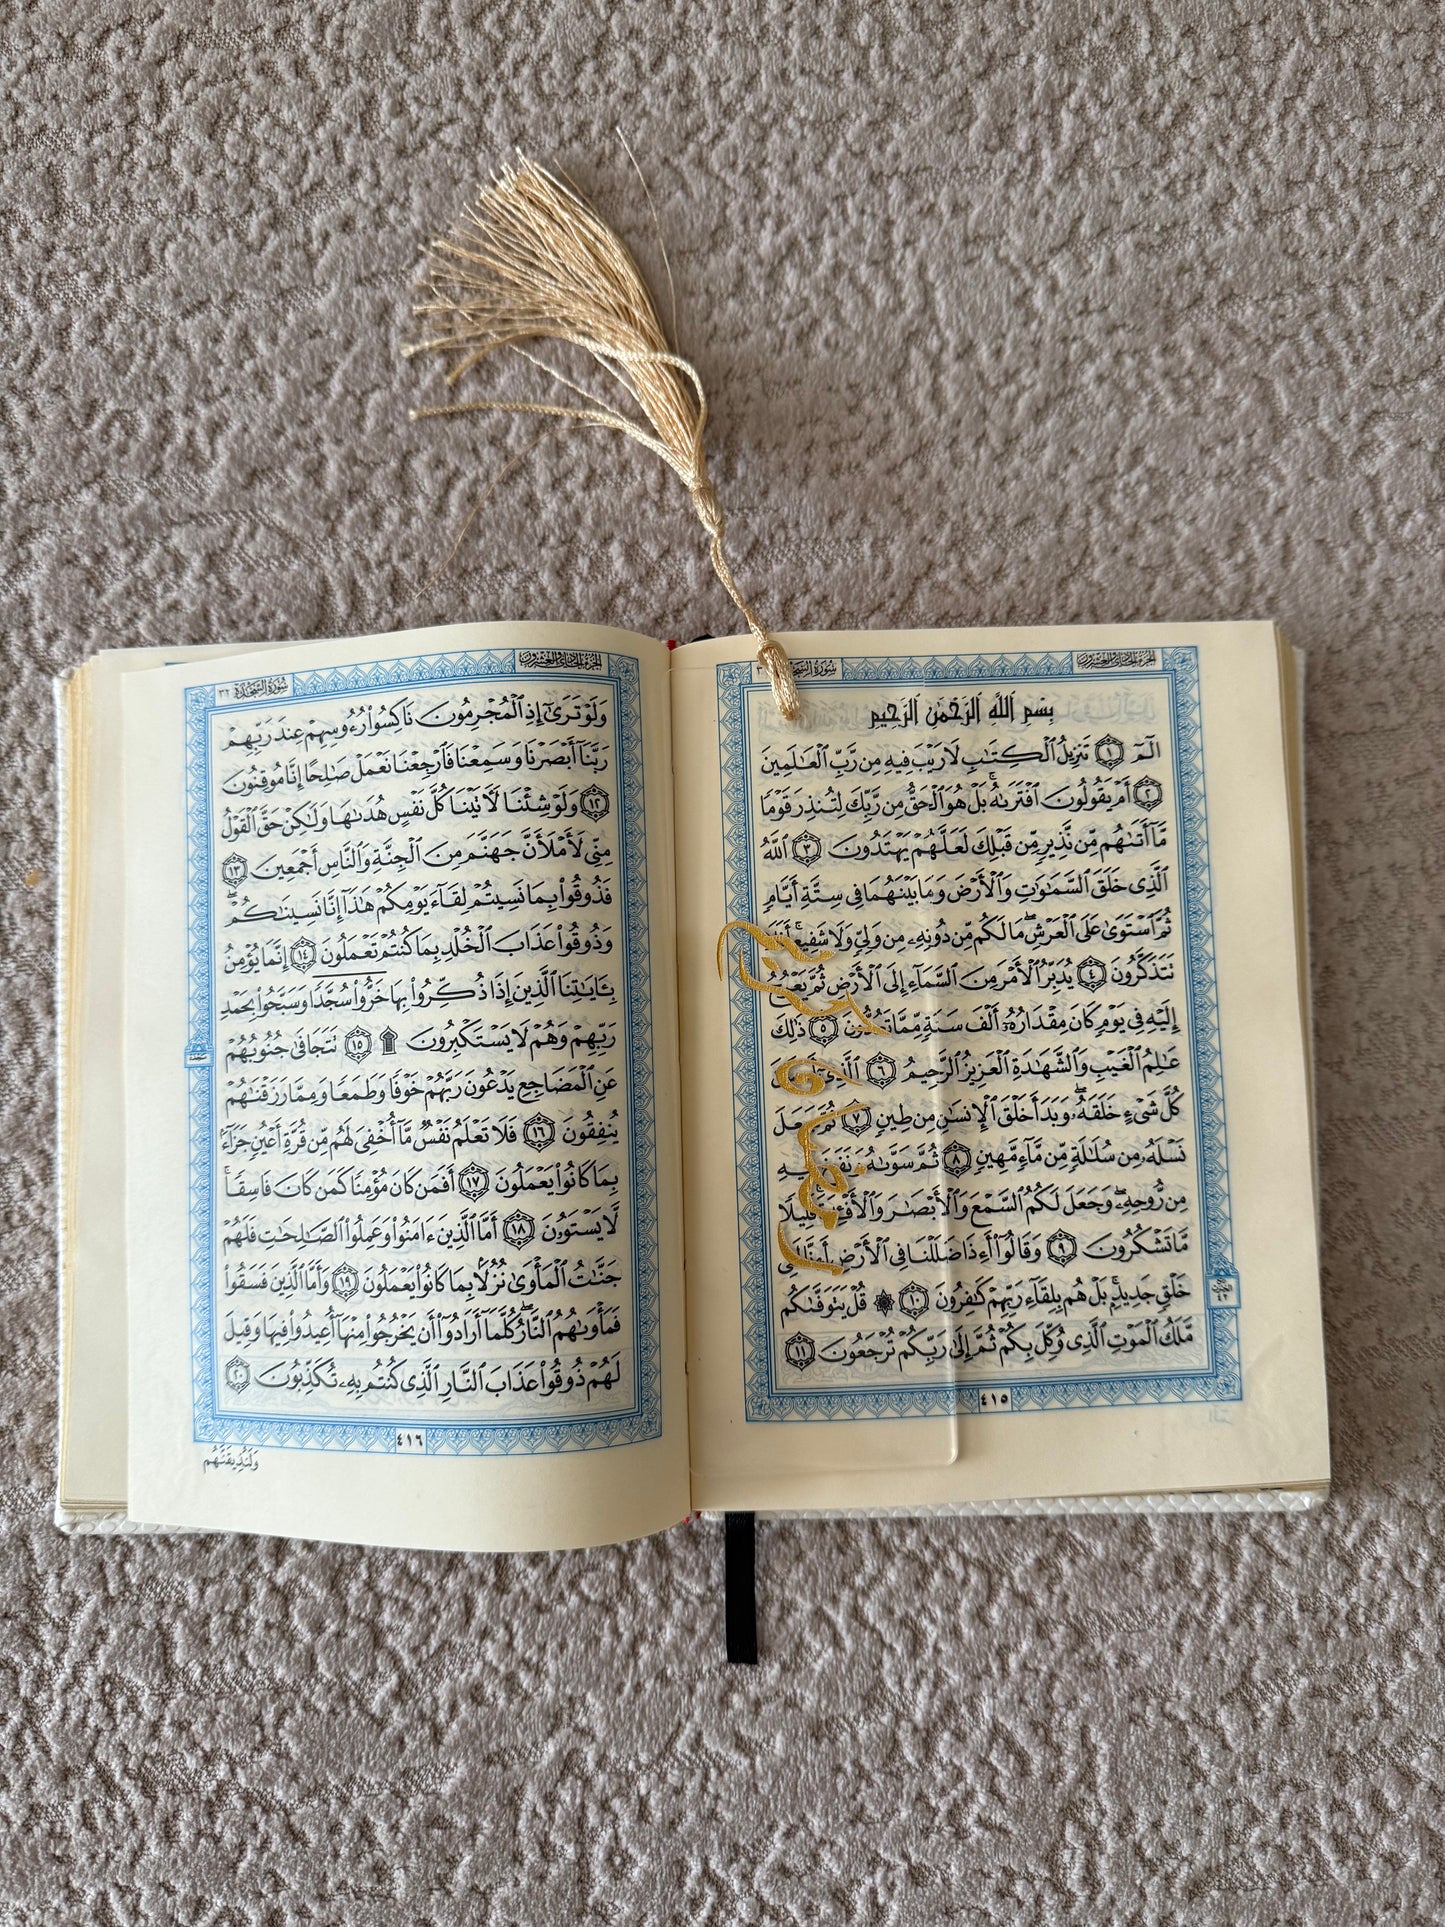 الجزء الحادي والعشرون
سورة السجدة
بِسْمِ ٱللَّهِ ٱلرَّحْمَٰنِ ٱلرَّحِيمِ
الٓمٓ ١ تَنزِيلُ ٱلْكِتَٰبِ لَا رَيْبَ فِيهِ مِن رَّبِّ ٱلْعَٰلَمِينَ
٢ أَمْ يَقُولُونَ ٱفْتَرَىٰهُ ۚ بَلْ هُوَ ٱلْحَقُّ مِن رَّبِّكَ لِتُنذِرَ قَوْمًا
مَّآ أَتَىٰهُم مِّن نَّذِيرٍ مِّن قَبْلِكَ لَعَلَّهُمْ يَهْتَدُونَ ٣ ٱللَّهُ
ٱلَّذِى خَلَقَ ٱلسَّمَٰوَٰتِ وَٱلْأَرْضَ وَمَا بَيْنَهُمَا فِى سِتَّةِ أَيَّامٍ
ثُمَّ ٱسْتَوَىٰ عَلَى ٱلْعَرْشِ ۖ مَا لَكُم مِّن دُونِهِۦ مِن وَلِىٍّ وَلَا شَفِيعٍ ۚ أَفَلَا
تَتَذَكَّرُونَ ٤ يُدَبِّرُ ٱلْأَمْرَ مِنَ ٱلسَّمَآءِ إِلَى ٱلْأَرْضِ ثُمَّ يَعْرُجُ
إِلَيْهِ فِى يَوْمٍ كَانَ مِقْدَارُهُۥٓ أَلْفَ سَنَةٍ مِّمَّا تَعُدُّونَ ٥ ذَٰلِكَ
عَٰلِمُ ٱلْغَيْبِ وَٱلشَّهَٰدَةِ ٱلْعَزِيزُ ٱلرَّحِيمُ ٦ ٱلَّذِىٓ أَحْسَنَ
كُلَّ شَىْءٍ خَلَقَهُۥ ۖ وَبَدَأَ خَلْقَ ٱلْإِنسَٰنِ مِن طِينٍ ٧ ثُمَّ جَعَلَ
نَسْلَهُۥ مِن سُلَٰلَةٍ مِّن مَّآءٍ مَّهِينٍ ٨ ثُمَّ سَوَّىٰهُ وَنَفَخَ فِيهِ
مِن رُّوحِهِۦ ۖ وَجَعَلَ لَكُمُ ٱلسَّمْعَ وَٱلْأَبْصَٰرَ وَٱلْأَفْـِٔدَةَ ۚ قَلِيلًا
مَّا تَشْكُرُونَ ٩ وَقَالُوٓا۟ أَءِذَا ضَلَلْنَا فِى ٱلْأَرْضِ أَءِنَّا لَفِى
خَلْقٍ جَدِيدٍۭ ۚ بَلْ هُم بِلِقَآءِ رَبِّهِمْ كَٰفِرُونَ ١٠ ۞ قُلْ يَتَوَفَّىٰكُم
مَّلَكُ ٱلْمَوْتِ ٱلَّذِى وُكِّلَ بِكُمْ ثُمَّ إِلَىٰ رَبِّكُمْ تُرْجَعُونَ ١١
٤١٥
الجزء الحادي والعشرون
سورة السجدة ٣٢
وَلَوْ تَرَىٰٓ إِذِ ٱلْمُجْرِمُونَ نَاكِسُوا۟ رُءُوسِهِمْ عِندَ رَبِّهِمْ
رَبَّنَآ أَبْصَرْنَا وَسَمِعْنَا فَٱرْجِعْنَا نَعْمَلْ صَٰلِحًا إِنَّا مُوقِنُونَ
١٢ وَلَوْ شِئْنَا لَءَاتَيْنَا كُلَّ نَفْسٍ هُدَىٰهَا وَلَٰكِنْ حَقَّ ٱلْقَوْلُ
مِنِّى لَأَمْلَأَنَّ جَهَنَّمَ مِنَ ٱلْجِنَّةِ وَٱلنَّاسِ أَجْمَعِينَ ١٣
فَذُوقُوا۟ بِمَا نَسِيتُمْ لِقَآءَ يَوْمِكُمْ هَٰذَآ إِنَّا نَسِينَٰكُمْ ۖ
وَذُوقُوا۟ عَذَابَ ٱلْخُلْدِ بِمَا كُنتُمْ تَعْمَلُونَ ١٤ إِنَّمَا يُؤْمِنُ
بِـَٔايَٰتِنَا ٱلَّذِينَ إِذَا ذُكِّرُوا۟ بِهَا خَرُّوا۟ سُجَّدًا وَسَبَّحُوا۟ بِحَمْدِ
رَبِّهِمْ وَهُمْ لَا يَسْتَكْبِرُونَ ۩ ١٥ تَتَجَافَىٰ جُنُوبُهُمْ
عَنِ ٱلْمَضَاجِعِ يَدْعُونَ رَبَّهُمْ خَوْفًا وَطَمَعًا وَمِمَّا رَزَقْنَٰهُمْ
يُنفِقُونَ ١٦ فَلَا تَعْلَمُ نَفْسٌ مَّآ أُخْفِىَ لَهُم مِّن قُرَّةِ أَعْيُنٍ جَزَآءًۢ
بِمَا كَانُوا۟ يَعْمَلُونَ ١٧ أَفَمَن كَانَ مُؤْمِنًا كَمَن كَانَ فَاسِقًا ۚ
لَّا يَسْتَوُۥنَ ١٨ أَمَّا ٱلَّذِينَ ءَامَنُوا۟ وَعَمِلُوا۟ ٱلصَّٰلِحَٰتِ فَلَهُمْ
جَنَّٰتُ ٱلْمَأْوَىٰ نُزُلًۢا بِمَا كَانُوا۟ يَعْمَلُونَ ١٩ وَأَمَّا ٱلَّذِينَ فَسَقُوا۟
فَمَأْوَىٰهُمُ ٱلنَّارُ ۖ كُلَّمَآ أَرَادُوٓا۟ أَن يَخْرُجُوا۟ مِنْهَآ أُعِيدُوا۟ فِيهَا وَقِيلَ
لَهُمْ ذُوقُوا۟ عَذَابَ ٱلنَّارِ ٱلَّذِى كُنتُم بِهِۦ تُكَذِّبُونَ ٢٠
٤١٦
وَلَنُذِيقَنَّهُم